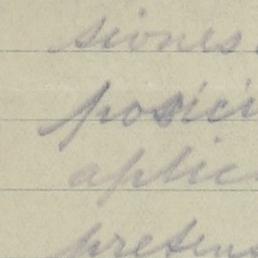 siones
posici
aplic
preten